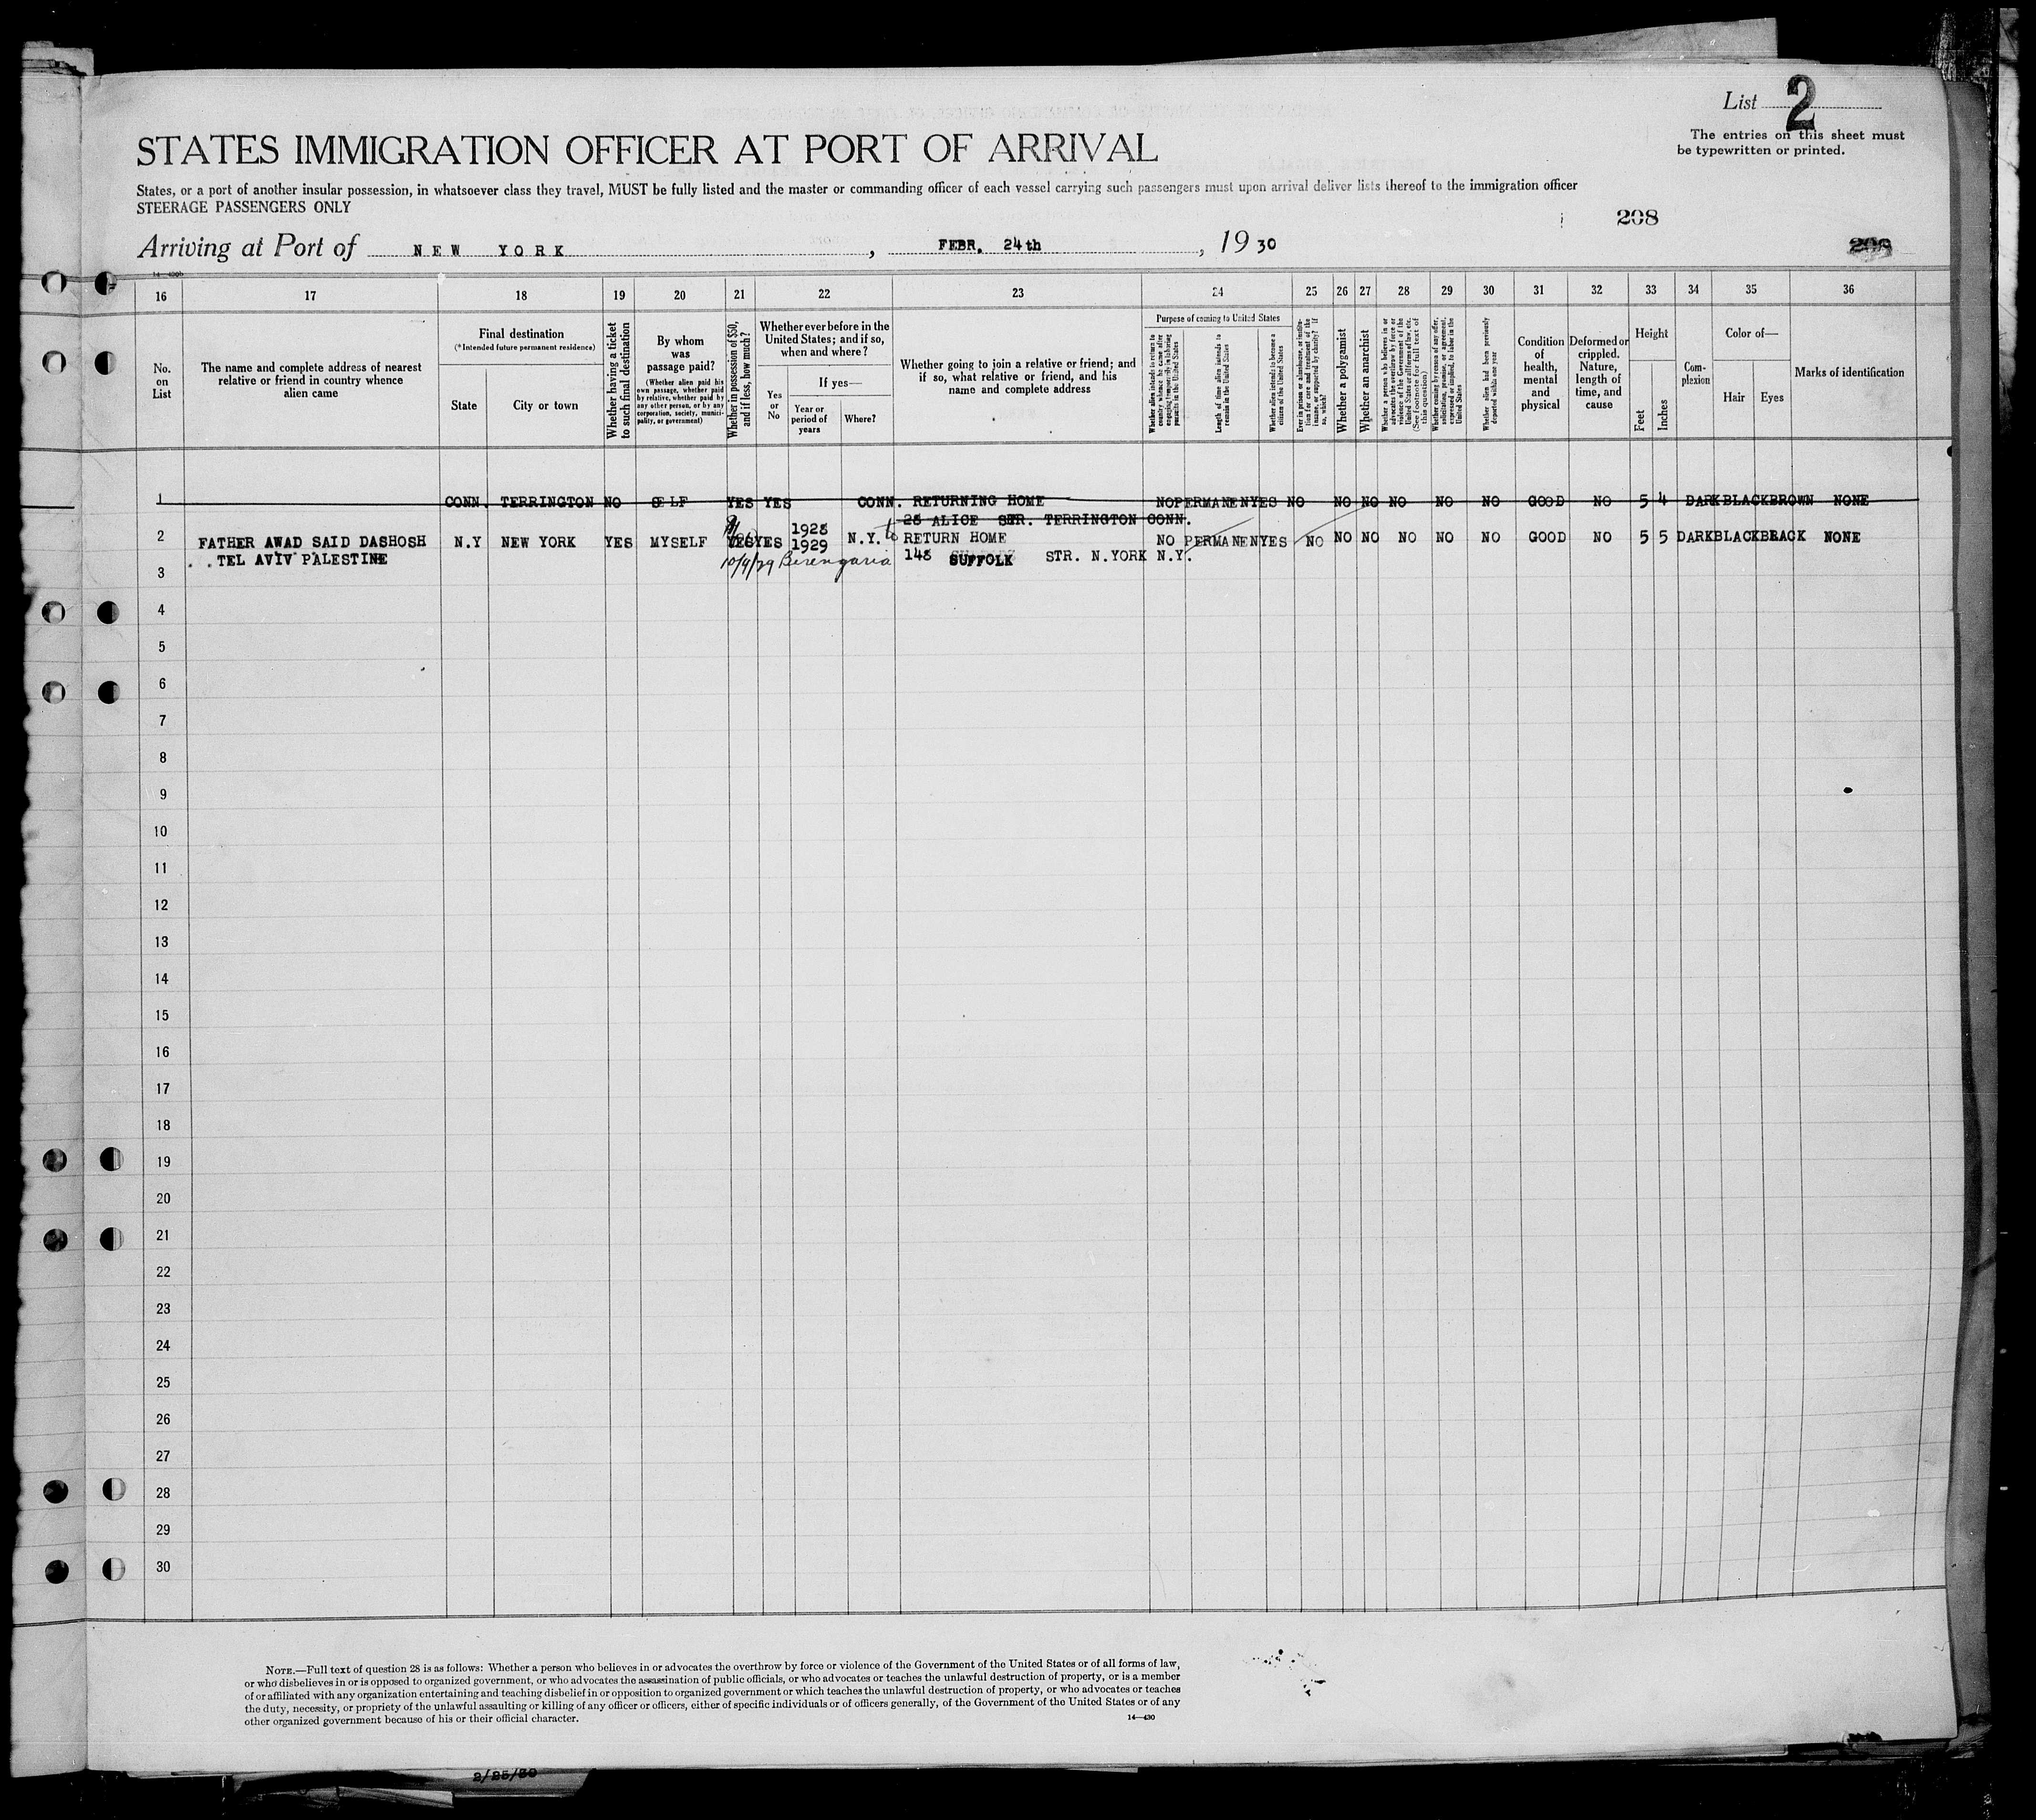 List 2
The entries on this sheet must
be typewritten or printed.
STATES IMMIGRATION OFFICER AT PORT OF ARRIVAL
States, or a port of another insular possession, in whatsoever class they travel, MUST be fully listed and the master or commanding officer of each vessel carrying such passengers must upon arrival deliver lists thereof to the immigration officer
STEERAGE PASSENGERS ONLY
208
Arriving at Port of NEW YORK, FEBR. 24th, 1930
208
14—430b
16 17 18 19 20 21 22 23 24 25 26 27 28 29 30 31 32 33 34 35 36
No.
on
List
The name and complete address of nearest
relative or friend in country whence
alien came
Final destination
(*Intended future permanent residence)
State
City or town
Whether having a ticket
to such final destination
By whom
was
passage paid?
(Whether alien paid his
own passage, whether paid
by relative, whether paid by
any other person, or by any
corporation, society, munici-
pality, or government)
Whether in possession of $50,
and if less, how much?
Whether ever before in the
United States; and if so,
when and where?
Yes
or
No
If yes—
Year or
period of
years
Where?
Whether going to join a relative or friend; and
if so, what relative or friend, and his
name and complete address
Purpose of coming to United States
Whether alien intends to return to
country whence he came after
engaging temporarily in laboring
pursuits in the United States
Length of time alien intends to
remain in the United States
Whether alien intends to become a
citizen of the United States
Ever in prison or almshouse, or institu-
tion for care and treatment of the
insane, or supported by charity? If
so, which?
Whether a polygamist
Whether an anarchist
Whether a person who believes in or
advocates the overthrow by force or
violence of the Government of the
United States or all forms of law, etc.
(See footnote for full text of
this question)
Whether coming by reason of any offer,
solicitation, promise, or agreement,
expressed or implied, to labor in the
United States
Whether alien had been previously
deported within one year
Condition
of
health,
mental
and
physical
Deformed or
crippled.
Nature,
length of
time, and
cause
Height
Feet
Inches
Com-
plexion
Color of—
Hair
Eyes
Marks of identification
1 CONN. TERRINGTON NO SELF YES YES CONN. RETURNING HOME NO PERMANEN YES NO NO NO NO NO NO GOOD NO 5 4 DARK BLACK BROWN NONE
25 ALICE STR. TERRINGTON CONN.
1928
2 FATHER AWAD SAID DASHOSH N.Y NEW YORK YES MYSELF YES YES 1929 N.Y. RETURN HOME NO PERMANEN YES NO NO NO NO NO NO GOOD NO 5 5 DARK BLACK BRACK NONE
TEL AVIV PALESTINE 10/4/29 Berengaria 148 SUFFOLK STR. N.YORK N.Y.
3
4
5
6
7
8
9
10
11
12
13
14
15
16
17
18
19
20
21
22
23
24
25
26
27
28
29
30
NOTE.—Full text of question 28 is as follows: Whether a person who believes in or advocates the overthrow by force or violence of the Government of the United States or of all forms of law,
or who disbelieves in or is opposed to organized government, or who advocates the assassination of public officials, or who advocates or teaches the unlawful destruction of property, or is a member
of or affiliated with any organization entertaining and teaching disbelief in or opposition to organized government or which teaches the unlawful destruction of property, or who advocates or teaches
the duty, necessity, or propriety of the unlawful assaulting or killing of any officer or officers, either of specific individuals or of officers generally, of the Government of the United States or of any
other organized government because of his or their official character.
14—430
2/25/30